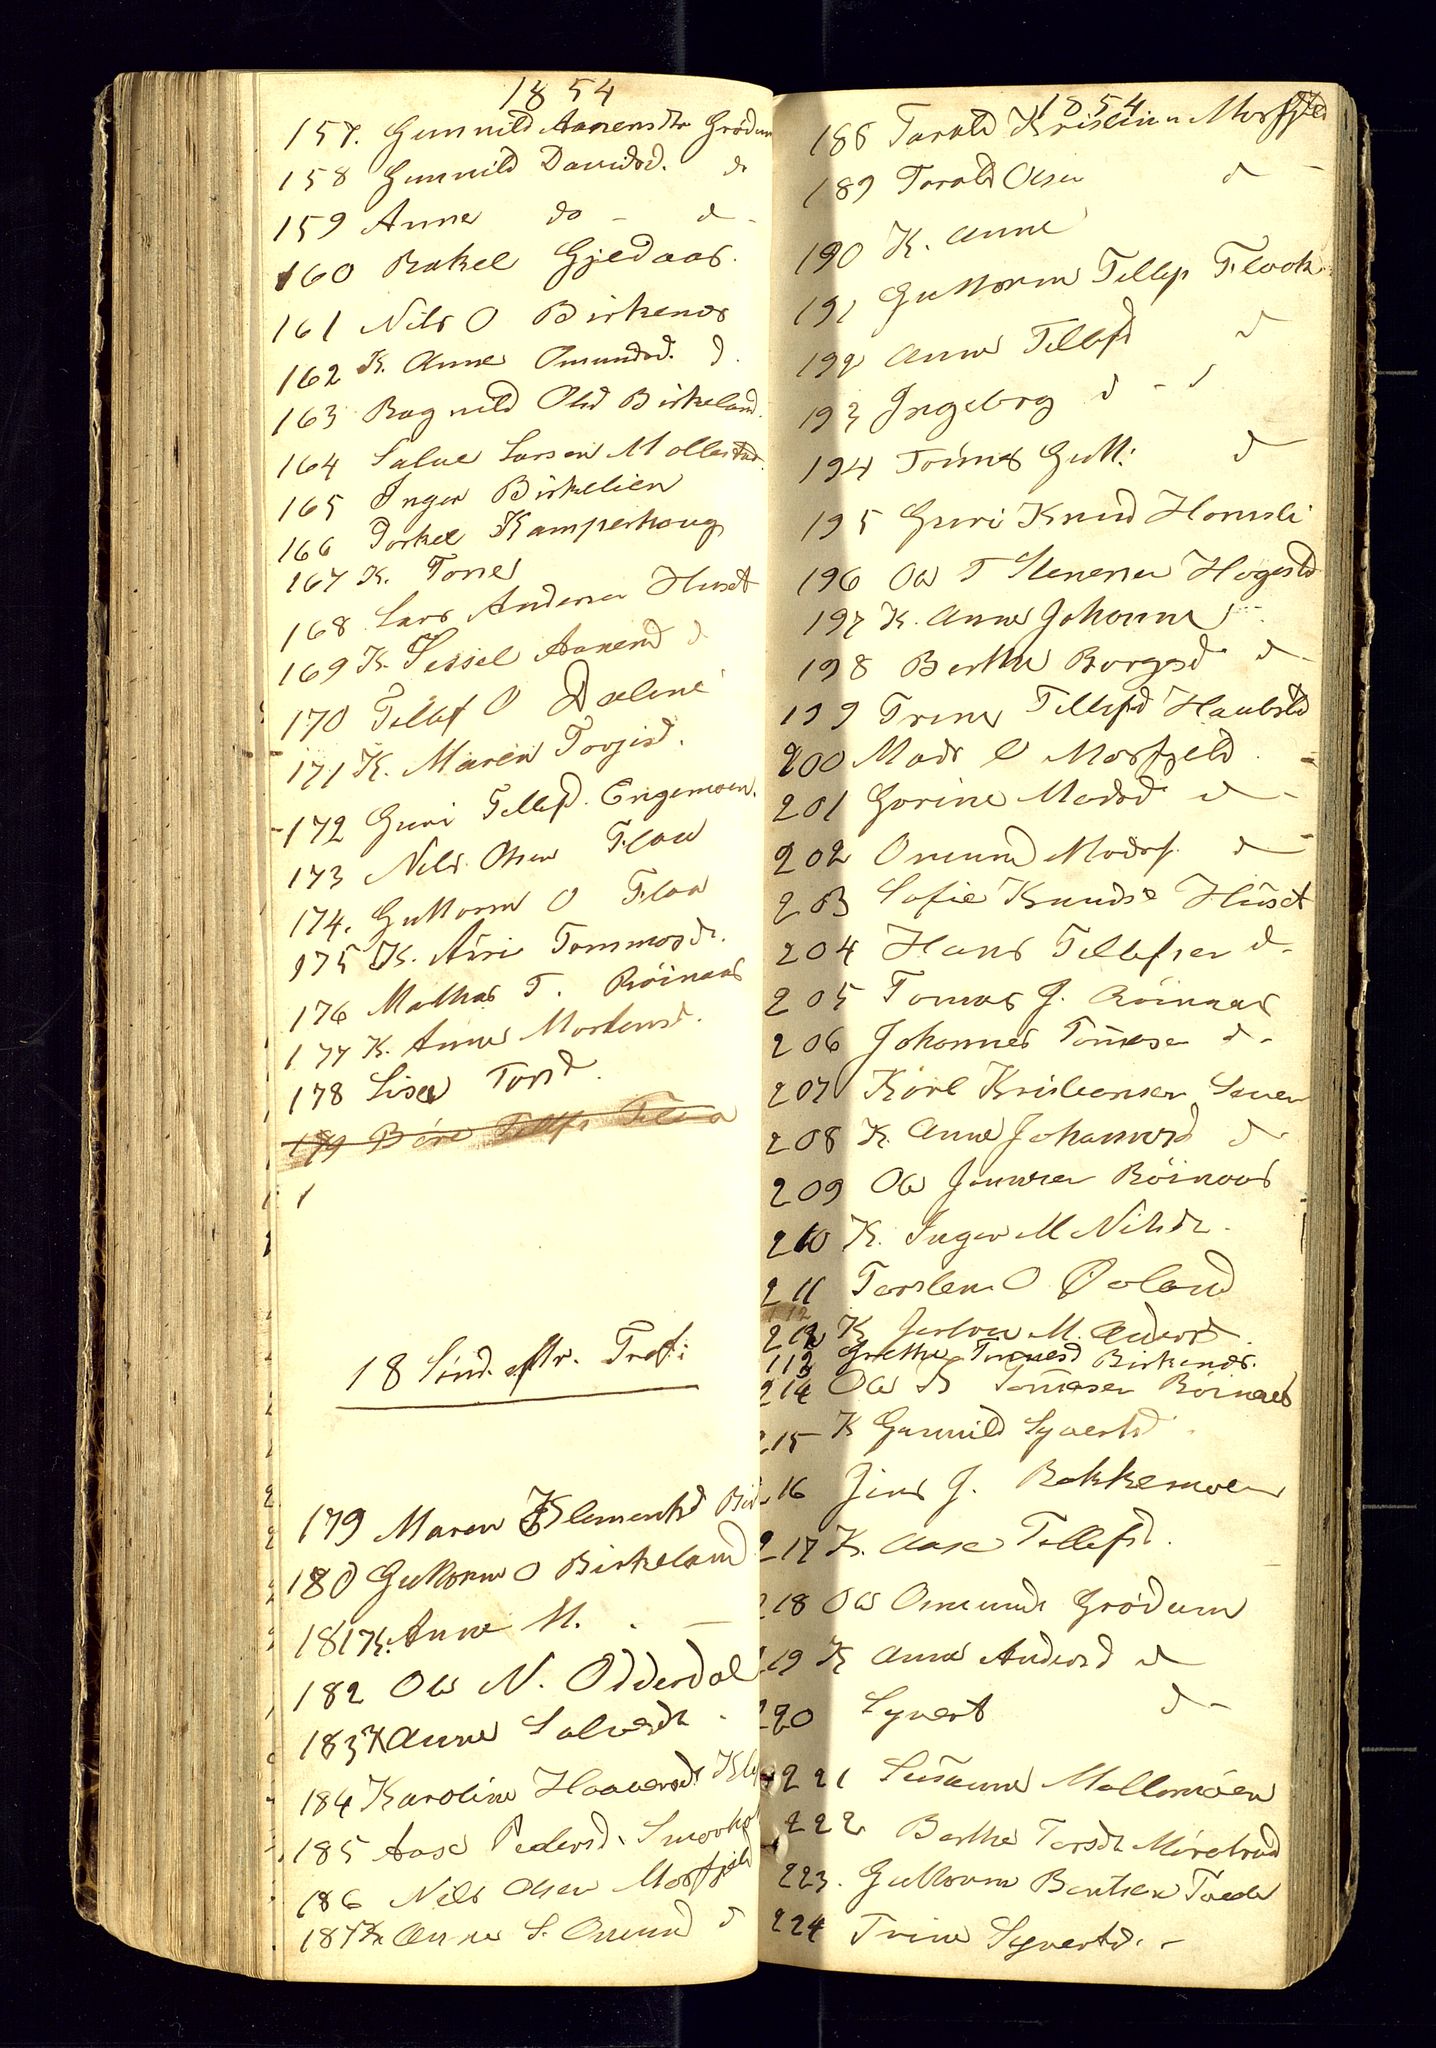 1854
157. Gunnild Aanensdtr Grødum
158 Gunnild Davidsd. do
159 Anne do - d -
160 Rakel Gjedaas.
161 Nils O Birkenes
162 K. Anne Omundsd. d.
163 Ragnild Olsd Birkeland.
164 Salve Larsen Mollestad.
165 Inger Birkelien
166 Torkel Kamperhoug
167 K. Tone
168 Lars Andersen Huset
169 K. Sissel Aanensd d
170 Tellef O Dalene
171 K. Maren Torgisd.
172 Guri Tellefsd. Engemoen.
173 Nils Olsen Flaa
174. Guttorm O Flaa
175 K. Asri Tommasd.
176 Mathias T. Röinaas
177 K. Anne Mortensd.
178 Lisa Torsd.
179 Böre Tellefs Flaa
1
18 Sind. eftr. Tref:
179 Maren Klementsd
180 Guttorm O Birkeland
181 K. Anne M. . -
182 Ole N. Odderdal
183 K Anne Salvesdr -
184 Karoline Haaversdr
185 Aase Pedersd.
186 Nils Olsen Mosfjeld
187 K Anne S. Omund d
1854
188 Tarald Kristian Mosfjeld
189 Tarald Olsen d -
190 K. Anne
191 Guttorm Tellefs Flaak
192 Anne Tellefsd d
193 Ingeborg d - d
194 Tomas Gutt: d
195 Guri Knud Homsli
196 Ole T Stenersen Hogestd
197 K. Anne Johanne d -
198 Berthe Borgesd d -
199 Trine Tellefsd Haabestd
200 Mads O Mosfjeld.
201 Gorine Madsd d -
202 Omund Madsf. d -
203 Sofie Knudsd Huset
204 Hans Tellefsen d -
205 Tomas J. Röinaas
206 Johannes Tomasen d -
207 Karl Kristiansen
208 K. Anne Johannesd d -
209 Ole Jensen Röinaas
210 K. Inger M Nilsdr.
211 Torsten O Øoland
212 K M. Andersd.
113 Grethe Tomesd Birkenes.
214 Ole B Tomasen Röinaas
215 K Gunnild Syvertsd
16 Jens J. Bakkemoen
217 K. Aase Tellefsd.
218 Ole Omunds Grødum
219 K Anne Andersd d
220 Syvert d -
221 Susanne Mollemoen
222 Berthe Torsdr
223. Guttorm Bentsen Tvede
224 Trine Syvertsd. -